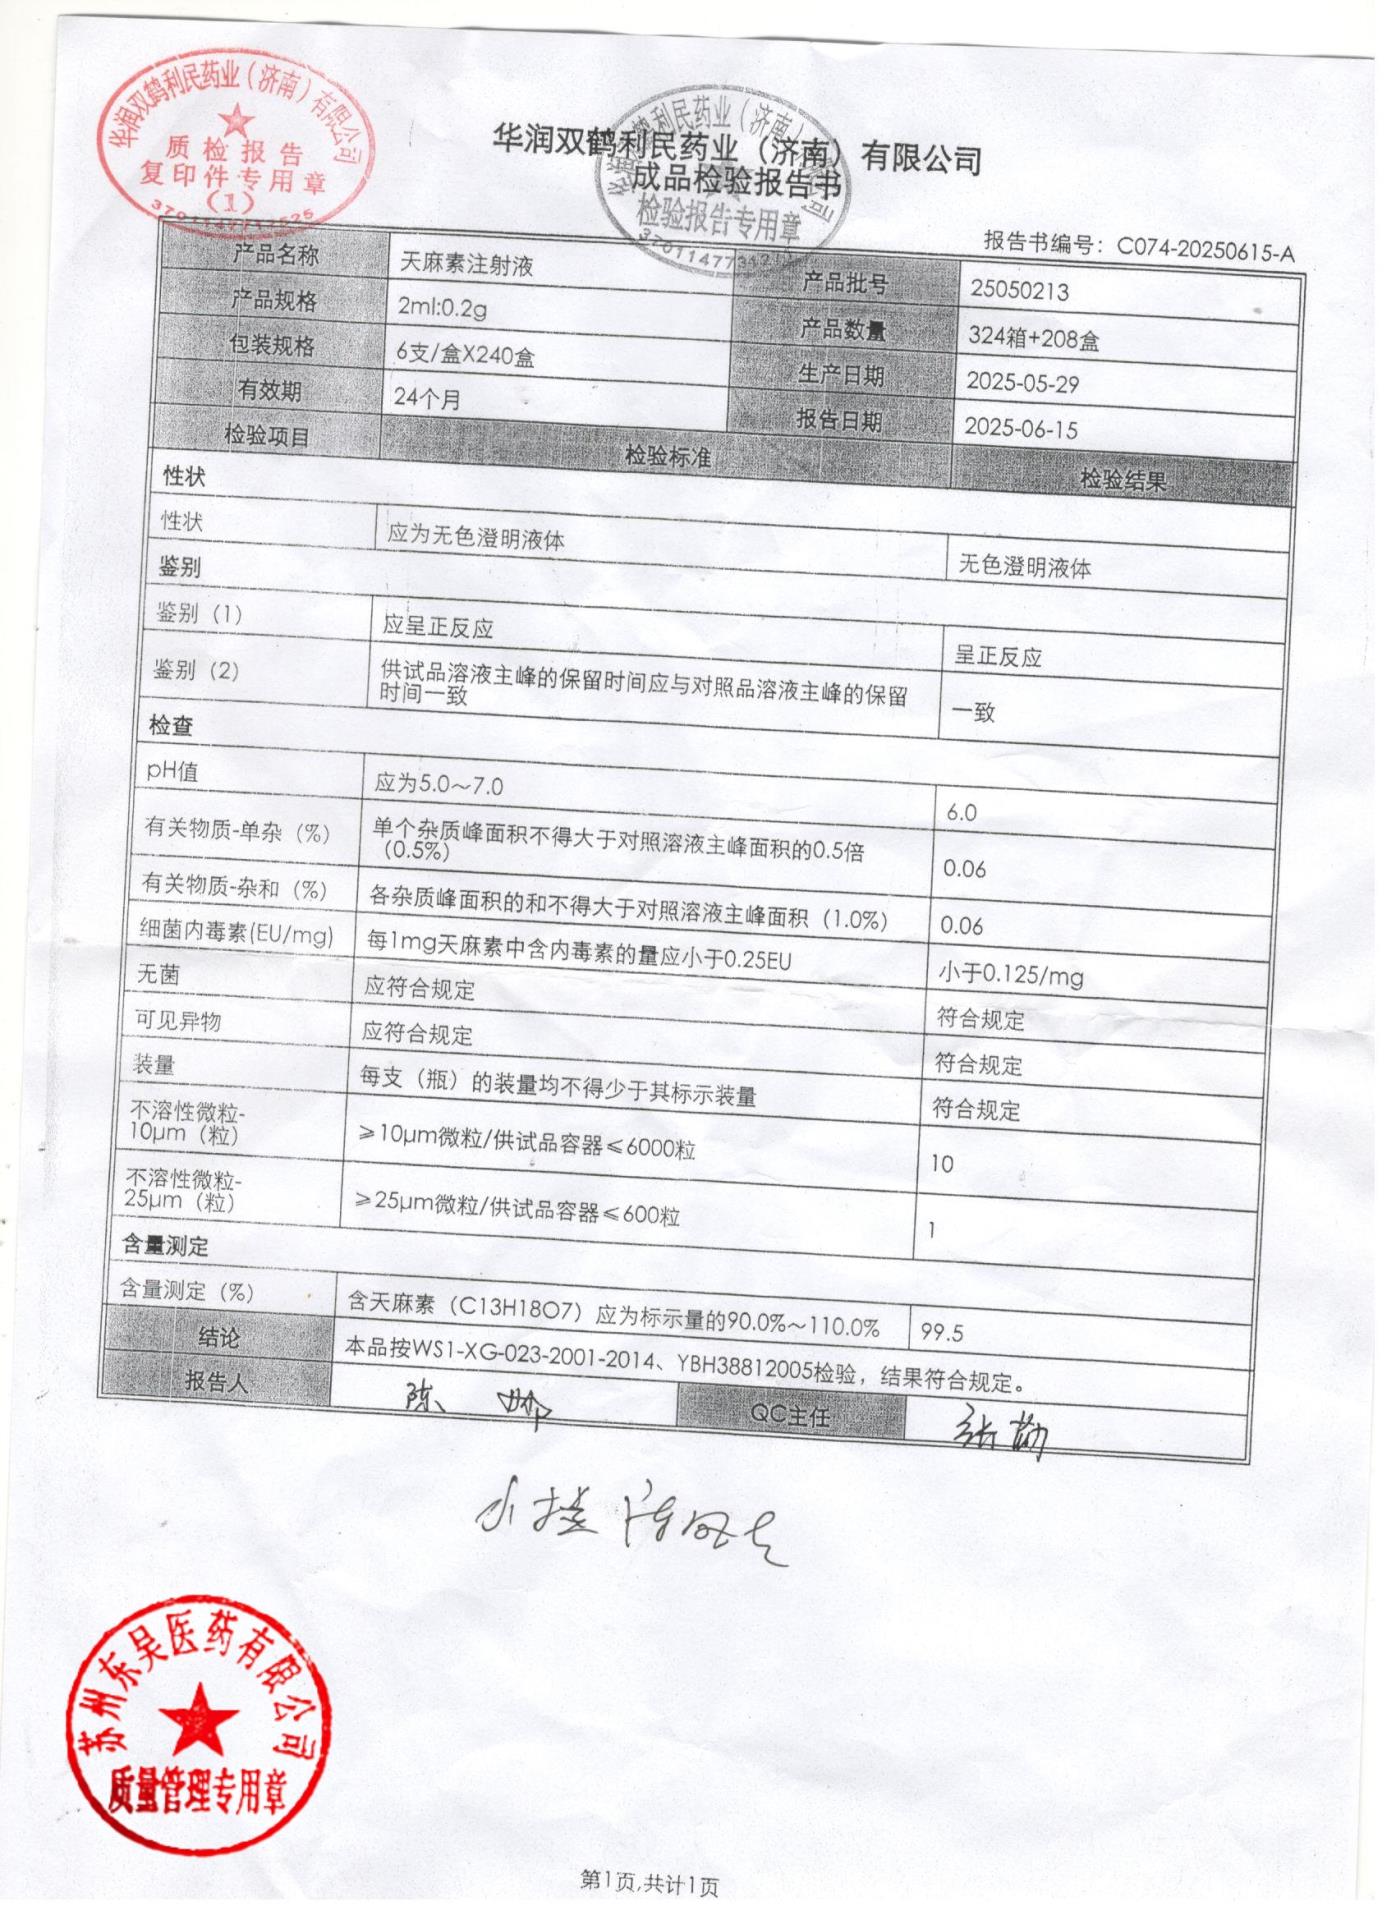 华润双鹤利民药业（济南）有限公司
质检报告
复印件专用章
（1）
华润双鹤利民药业（济南）有限公司
成品检验报告书
检验报告专用章
报告书编号：C074-20250615-A
产品名称 天麻素注射液 产品批号 25050213
产品规格 2ml:0.2g 产品数量 324箱+208盒
包装规格 6支/盒X240盒 生产日期 2025-05-29
有效期 24个月 报告日期 2025-06-15
检验项目 检验标准 检验结果
性状
性状 应为无色澄明液体 无色澄明液体
鉴别
鉴别（1） 应呈正反应 呈正反应
鉴别（2） 供试品溶液主峰的保留时间应与对照品溶液主峰的保留
时间一致 一致
检查
pH值 应为5.0～7.0 6.0
有关物质-单杂（%） 单个杂质峰面积不得大于对照溶液主峰面积的0.5倍
（0.5%） 0.06
有关物质-杂和（%） 各杂质峰面积的和不得大于对照溶液主峰面积（1.0%） 0.06
细菌内毒素(EU/mg) 每1mg天麻素中含内毒素的量应小于0.25EU 小于0.125/mg
无菌 应符合规定 符合规定
可见异物 应符合规定 符合规定
装量 每支（瓶）的装量均不得少于其标示装量 符合规定
不溶性微粒-
10μm（粒） ≥10μm微粒/供试品容器≤6000粒 10
不溶性微粒-
25μm（粒） ≥25μm微粒/供试品容器≤600粒 1
含量测定
含量测定（%） 含天麻素（C13H18O7）应为标示量的90.0%～110.0% 99.5
结论 本品按WS1-XG-023-2001-2014、YBH38812005检验，结果符合规定。
报告人 陈 QC主任 张勤
苏州东吴医药有限公司
质量管理专用章
第1页,共计1页